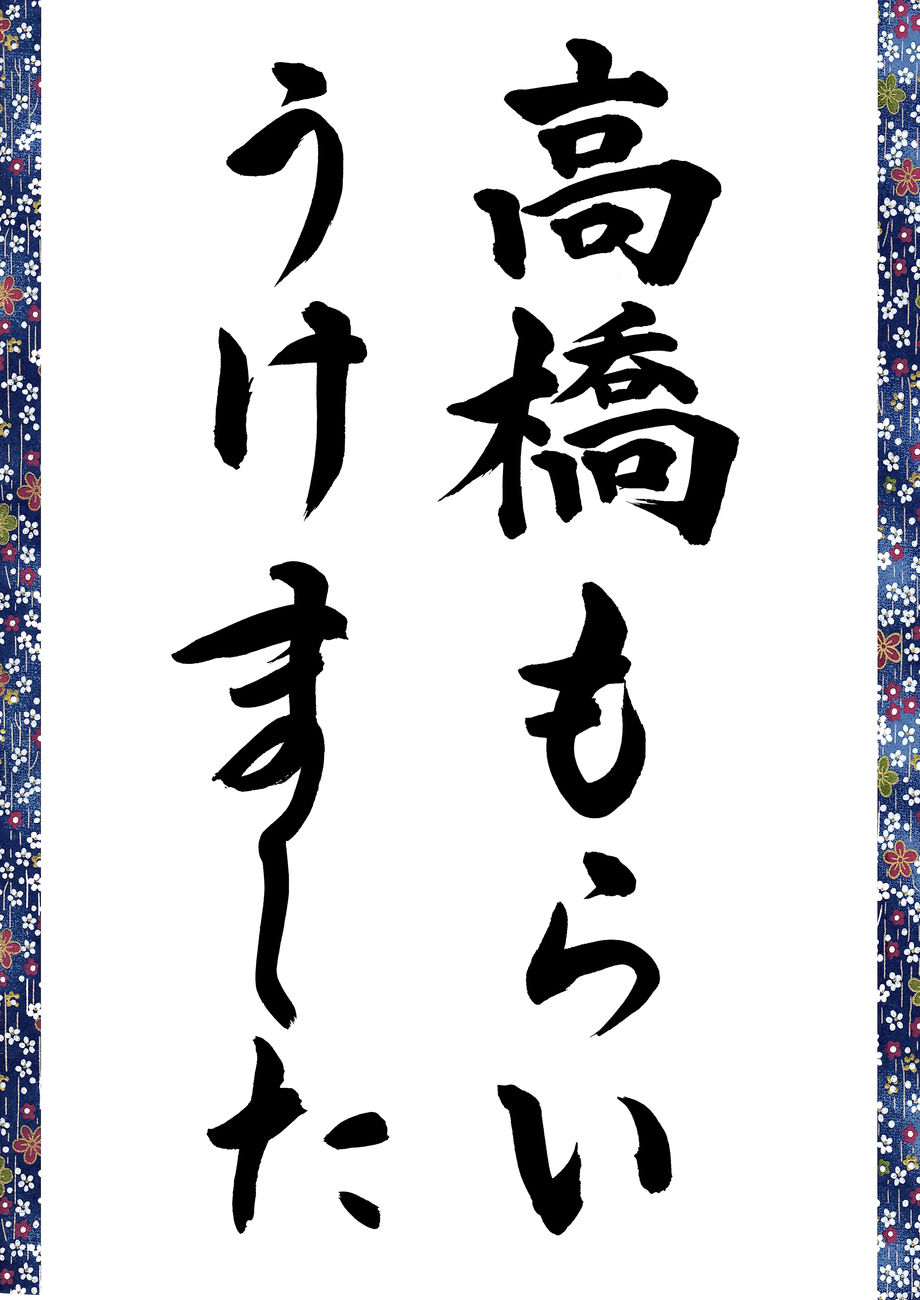 高橋もらい
うけました